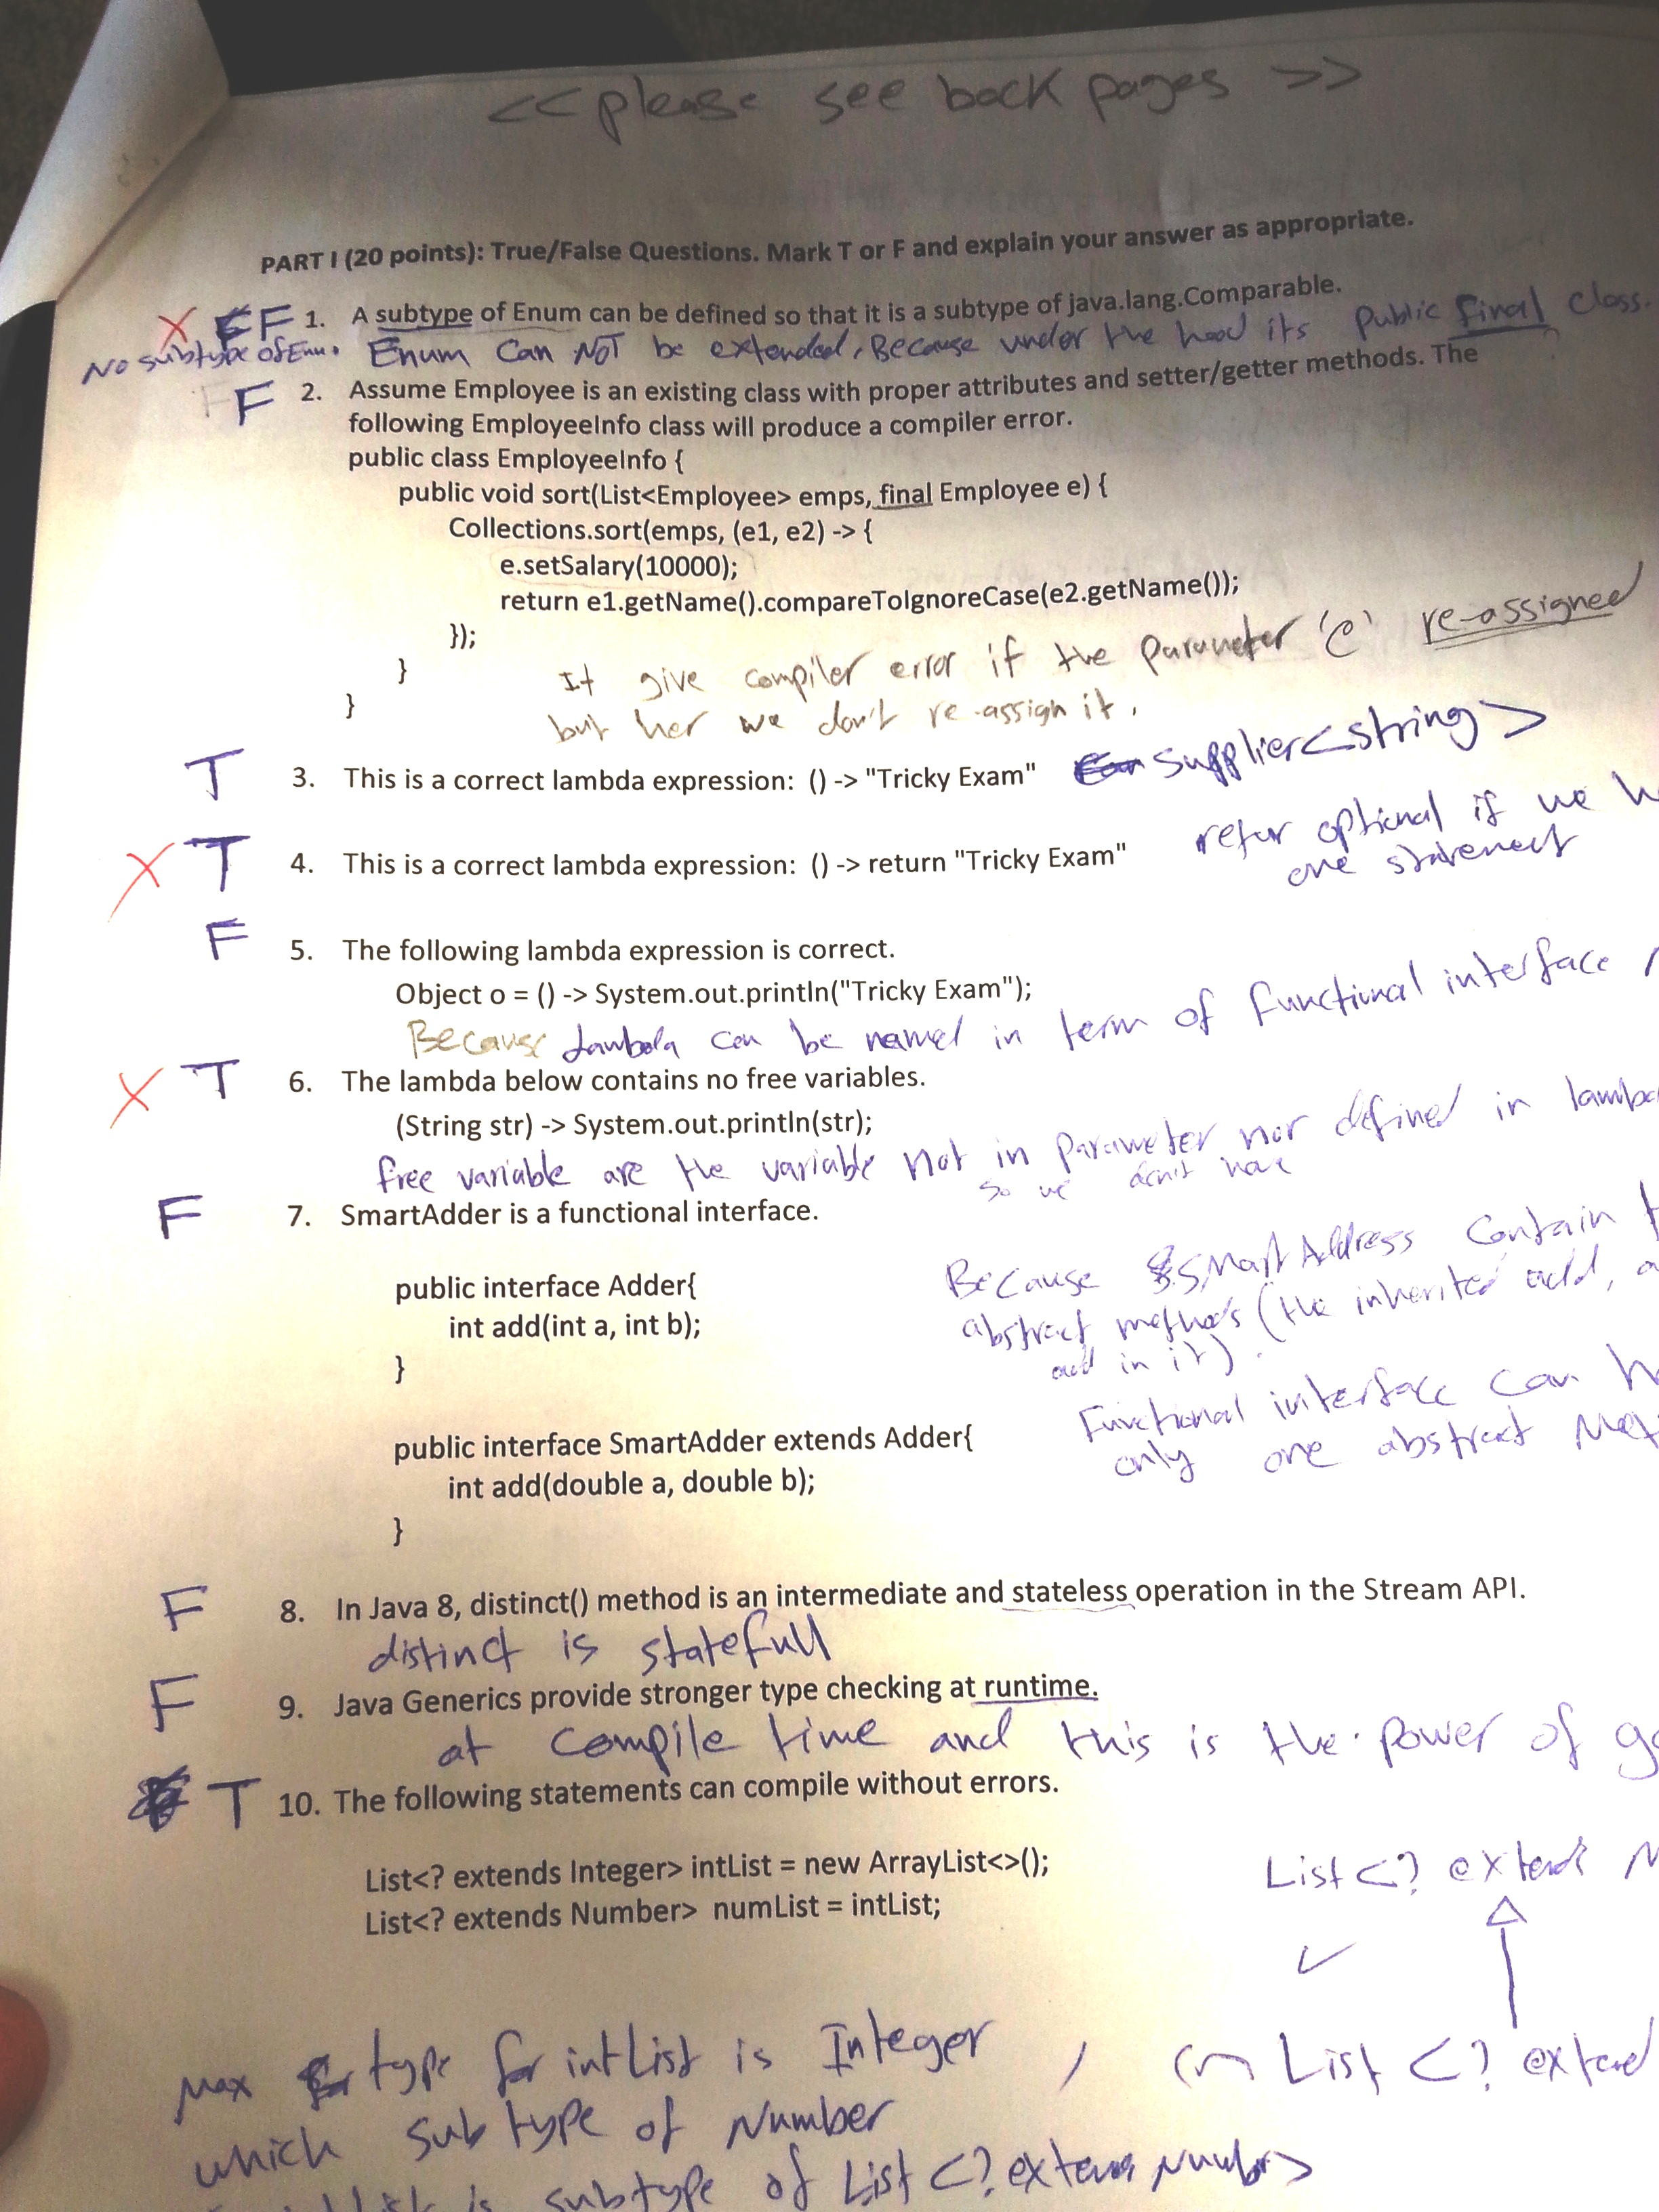 <<please see back pages >>
PART I (20 points): True/False Questions. Mark T or F and explain your answer as appropriate.
X F 1. A subtype of Enum can be defined so that it is a subtype of java.lang.Comparable.
No subtype of Enum. Enum Can NOT be extended, Because under the hood its Public final Class.
F 2. Assume Employee is an existing class with proper attributes and setter/getter methods. The
following EmployeeInfo class will produce a compiler error.
public class EmployeeInfo {
public void sort(List<Employee> emps, final Employee e) {
Collections.sort(emps, (e1, e2) -> {
e.setSalary(10000);
return e1.getName().compareToIgnoreCase(e2.getName());
});
}
}
It give compiler error if the parameter 'e' re-assigned
but her we don't re-assign it.
T 3. This is a correct lambda expression: () -> "Tricky Exam" Supplier<string>
X T 4. This is a correct lambda expression: () -> return "Tricky Exam"
optional if we
one statement
F 5. The following lambda expression is correct.
Object o = () -> System.out.println("Tricky Exam");
Because Lambda can be named in term of functional interface
X T 6. The lambda below contains no free variables.
(String str) -> System.out.println(str);
free variable are the variable not in parameter nor defined in
so we don't have
F 7. SmartAdder is a functional interface.
public interface Adder{
int add(int a, int b);
}
Because SmartAddress Contain
abstract methods (the inherited add,
add in it).
Functional interface can
only one abstract
public interface SmartAdder extends Adder{
int add(double a, double b);
}
F 8. In Java 8, distinct() method is an intermediate and stateless operation in the Stream API.
distinct is statefull
F 9. Java Generics provide stronger type checking at runtime.
at compile time and this is the power of
T 10. The following statements can compile without errors.
List<? extends Integer> intList = new ArrayList<>();
List<? extends Number> numList = intList;
List<? extends
Max type for intList is Integer , List <? extend
which subtype of Number
is subtype of List <? extens Number>